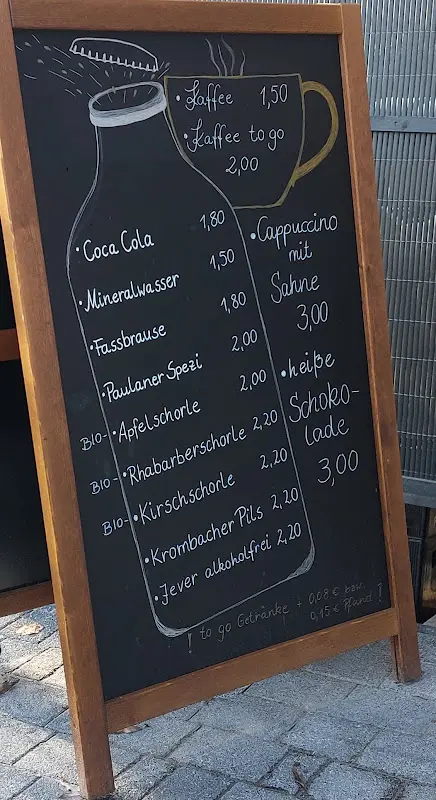 • Kaffee 1,50
• Kaffee to go
2,00
• Coca Cola 1,80
• Mineralwasser 1,50
• Fassbrause 1,80
• Paulaner Spezi 2,00
BIO- • Apfelschorle 2,00
BIO- • Rhabarberschorle 2,20
BIO- • Kirschschorle 2,20
• Krombacher Pils 2,20
• Jever alkoholfrei 2,20
• Cappuccino
mit
Sahne
3,00
• heiße
Schoko-
lade
3,00
! to go Getränke + 0,08 € bzw.
0,15 € Pfand !